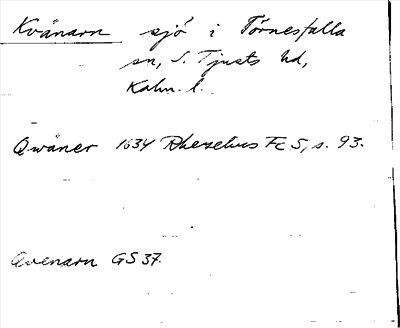 Kvänarn sjö i Törnesfalla
sn, S. Tjusts hd,
Kalm. l.
Qwäner 1634 Rhezelius Fc 5, s. 93.
Qvenarn GS 37.